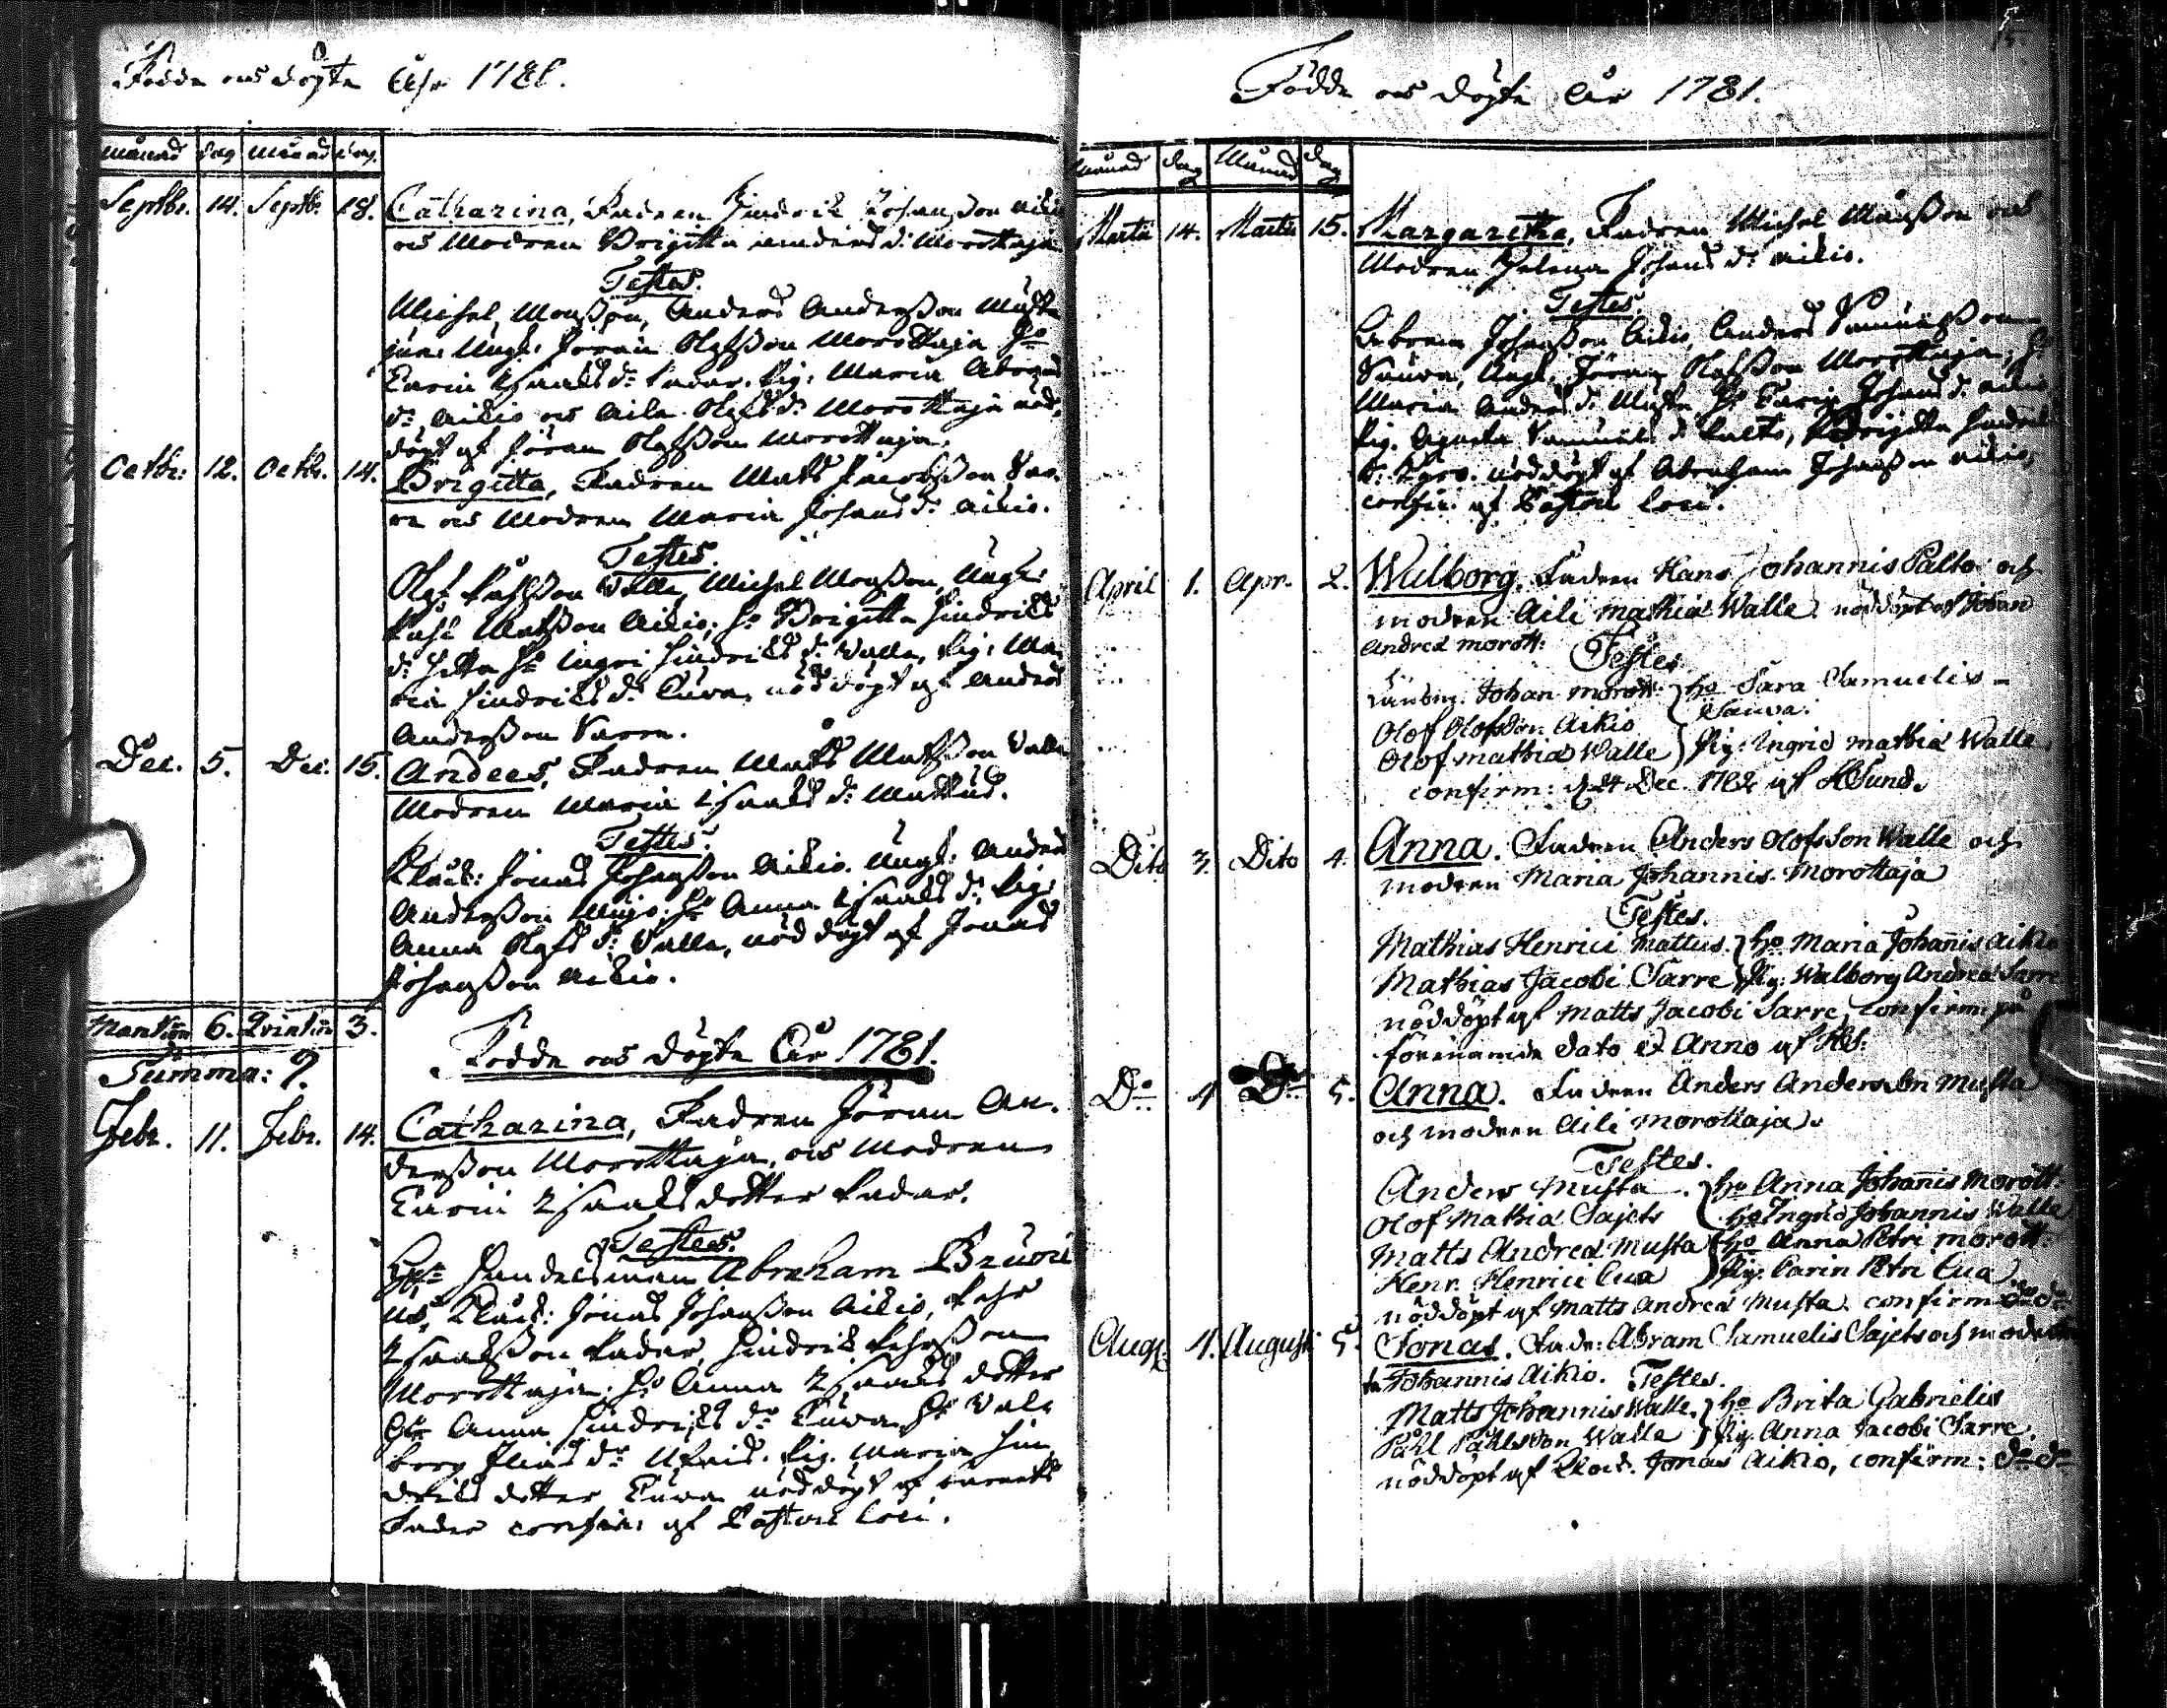 Födde och döpte Åhr 1780.
Månad dag Månad dag
Septbr. 14. Septbr. 18. Catharina, Fadren Hindrik Johansson Aikio
och Modren Brigitta Anders d:r Morottaja
Testes.
Michel Monsson, Anders Andersson Musta
Ungk: Jöran Olofsson Morottaja H:o
Carin Isaaks d:r Padar. Pig: Maria Abrams
d:r Aikio och Aila Olofs d:r Morottaja nöd,
döpt af Jöran Olofsson Morottaja.
Octbr: 12. Octbr. 14. Brigitta, Fadren Mats Jacobsson Sar-
re och Modren Maria Johans d:r Aikio.
Testes.
Olof Påhlsson Valle, Michel Monsson, Ungk:
Påhl Matsson Aikio; H:o Brigitta Hindriks
d:r H:o Ingri Hindriks d:r Valle, Pig: Ma-
ria Hindriks d:r Cuva, nöddöpt af Anders
Andersson Sarre.
Dec. 5. Dec. 15. Anders, Fadren Mats Matsson Valle
Modren Maria Isaaks d:r Mattus.
Testes.
Klock: Jonas Johansson Aikio. Ungk: Anders
Andersson H:o Anna Isaaks d:r Pig:
Anna Olofs d:r Valle, nöddöpt af Jonas
Johansson Aikio.
Mankön 6. Qvinkön 3.
Summa: 9.
Födde och döpte Åhr 1781.
Febr. 11. Febr. 14. Catharina, Fadren Jöran An-
dersson Morottaja, och Modren
Carin Isaaks dotter Padar.
Testes.
Handelsman Abraham Bruni
us, Klock: Jonas Johansson Aikio, Pehr
Isaaksson Padar, Hindrik Pehrsson
Morottaja; H:o Anna Isaaks dotter
H:o Anna Hindriks d:r Cuva H:o Val-
borg d:r Pig. Maria Hin
driks dotter Cuva nöddöpt af barnets
Fader confir: af Pastore loci.
Födde och döpte År 1781.
Månad dag Månad dag
Martii 14. Martii 15. Margaretha, Fadren Michel Månsson och
Modren Helena Johans d:r Aikio.
Testes
Johansson Aikio, Anders Samuelsson
Ungk. Jöran Olofsson Morottaja, H:o
Maria Anders d:r Musta H:o Carin Johans d:r Aikio
Pig. Agneta Samuels d:r Palto, Brigitta Hindriks
d:r nöddöpt af Abraham Johansson Aikio,
confir. af Pastore loci.
April 1. Apr. 2. Walborg. Fadren Hans Johannis Palto och
modren Aili Mathiæ Walle. nöddöpt af Johan
Andreæ Morott:
Testes
Johan Morott: } H:o Sara Samuelis
Olof Olofsson Aikio
Olof Mathiæ Walle } Pig: Ingrid Mathiæ Walle.
confirm: d 24 Dec. 1782 af HSund.
Dito 3. Dito 4. Anna. Fadren Anders Olofsson Walle och
modren Maria Johannis Morottaja
Testes.
Mathias Henrici Mattus. } H:o Maria Johannis Aikio
Mathias Jacobi Sarre } Pig: Walborg Andreæ Sarre
nöddöpt af Matts Jacobi Sarre, confirm: på
förenämde dato et Anno af HS:
D:o 4 D:o 5. Anna. Fadren Anders Andersson Musta
och modren Aili Morottaja.
Testes.
Anders Musta. { H:o Anna Johannis Morott.
Olof Mathiæ Sajets { H:o Ingrid Johannis Walle
Matts Andreæ Musta } H:o Anna Petri Morott:
Henr. Henrici Cua } Pig. Carin Petri Cua.
nöddöpt af Matts Andreæ Musta. confirm: d:o d:o
Aug. 4. Augusti 5. Jonas. Fadr: Abram Samuelis Sajets och modren
Johannis Aikio. Testes.
Matts Johannis Walle. } H:o Brita Gabrielis
Påhl Påhlsson Walle } Pig. Anna Jacobi Sarre.
nöddöpt af Klock. Jonas Aikio, confirm: d:o d:o